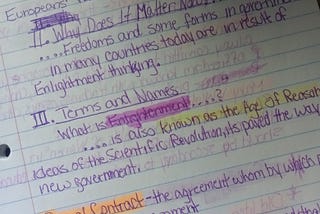 Europeans
II. Why Does It Matter Now
....Freedoms and some forms in
in many countries today are in result of
Enlightenment thinking.
III. Terms and Names
What is Enlightenment.....?
.... is also known as the Age of Reason
Ideas of the Scientific Revolution, its paved the way
new government.
Contract - the agreement whom by which